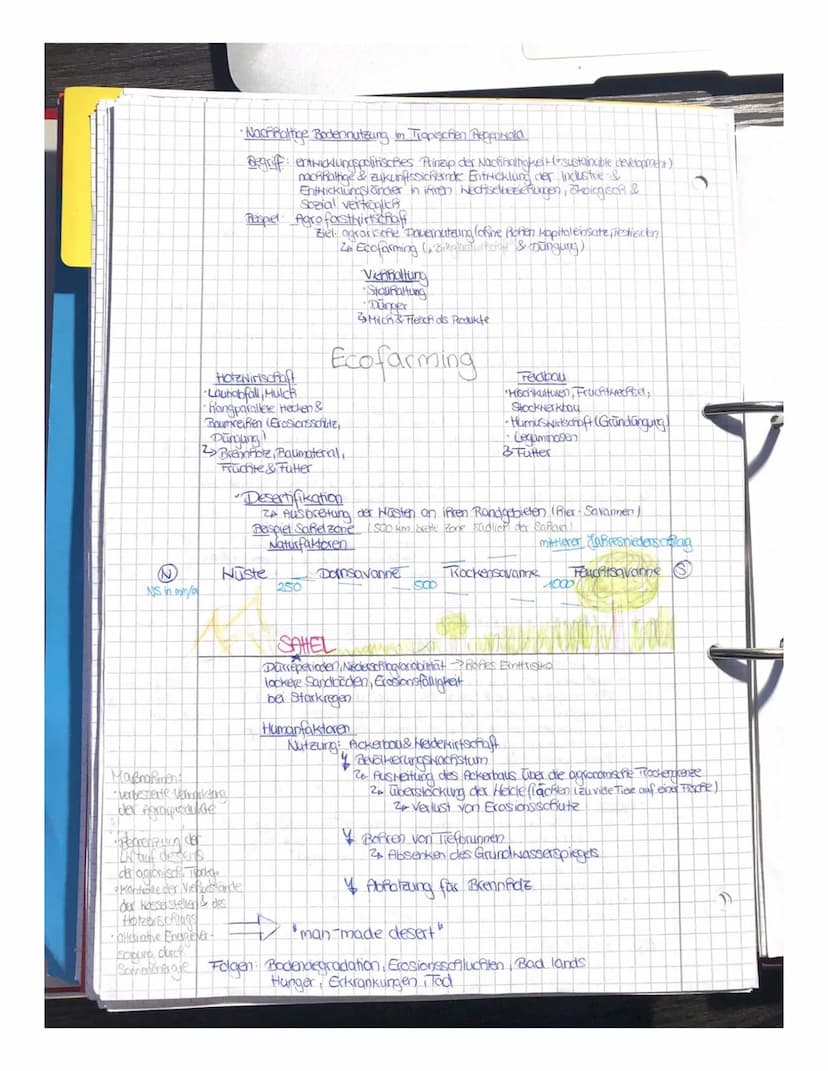 · Nachhaltige Bodennutzung im Tropischen Regenwald
Begriff: entwicklungspolitisches Prinzip der Nachhaltigkeit (=sustainable development)
nachhaltige & zukunftssichernde Entwicklung der Industrie- &
Entwicklungsländer in ihren Wechselbeziehungen, ökologisch &
sozial verträglich
Beispiel: Agroforstwirtschaft
Ziel: agrarische Dauernutzung (ohne hohen Kapitaleinsatz, Pestiziden
↳ Ecofarming ( & Düngung)
Viehhaltung
· Stallhaltung
· Dünger
↳ Milch & Fleisch als Produkte
Ecofarming
Holzwirtschaft
· Laubabfall, Mulch
· hangparallele Hecken &
Baumreihen (Erosionsschutz,
Düngung)
↳ Brennholz, Baumaterial,
Früchte & Futter
Feldbau
· Mischkulturen, Fruchtwechsel,
Stockwerkbau
· Humuswirtschaft (Gründüngung)
· Leguminosen
↳ Futter
· Desertifikation
↳ Ausbreitung der Wüsten an ihren Randgebieten (hier: Savannen)
Beispiel Sahelzone (500 km breite Zone südlich der Sahara)
Naturfaktoren
mittlerer Jahresniederschlag
N Wüste Dornsavanne Trockensavanne Feuchtsavanne S
NS in mm/a 250 500 1000
SAHEL
Dürreperioden, Niederschlagvariabilität → hohes
lockere Sandböden, Erosionsfälligkeit
bei Starkregen
Humanfaktoren
Nutzung: Ackerbau & Weidewirtschaft
↯ Bevölkerungswachstum
↳ Ausweitung des Ackerbaus über die agronomische Trockengrenze
↳ Überstockung der Weideflächen (zu viele Tiere auf einer Fläche)
↳ Verlust von Erosionsschutz
↯ Bohren von Tiefbrunnen
↳ Absenken des Grundwasserspiegels
↯ Abholzung für Brennholz
⇒ "man-made desert"
Folgen: Bodendegradation, Erosionsschluchten, Bad lands
Hunger, Erkrankungen, Tod
Maßnahmen:
· verbesserte Vermarktung
der Agrarprodukte
· Begrenzung der
LW auf diesseits
der agronomisch. Trockengr.
· Kontrolle der Viehbestände
der Wasserstellen & des
Holzeinschlags
· alternative Energiever-
sorgung durch
Sonnenenergie